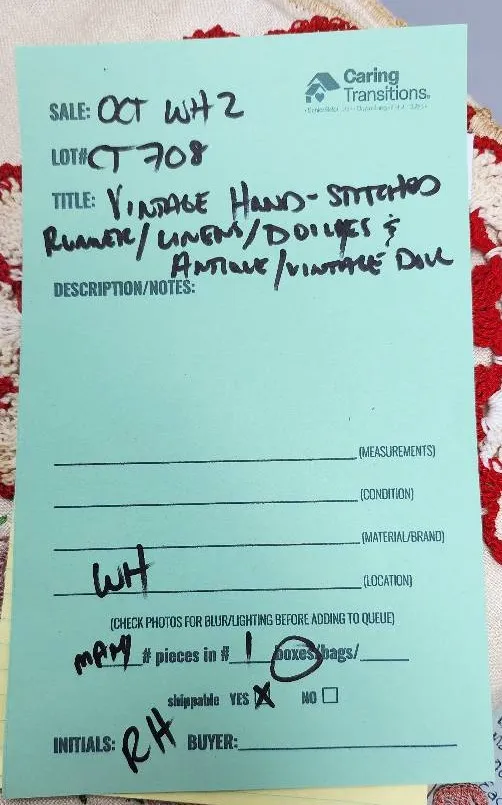 Caring
Transitions®
SALE: OCT WH 2
LOT# CT 708
TITLE: VINTAGE HAND-STITCHED
RUNNER/LINENS/DOILYES &
ANTIQUE/VINTAGE DOLL
DESCRIPTION/NOTES:
(MEASUREMENTS)
(CONDITION)
(MATERIAL/BRAND)
WH (LOCATION)
(CHECK PHOTOS FOR BLUR/LIGHTING BEFORE ADDING TO QUEUE)
MANY # pieces in # 1 boxes/bags/
shippable YES X NO
INITIALS: RH BUYER: